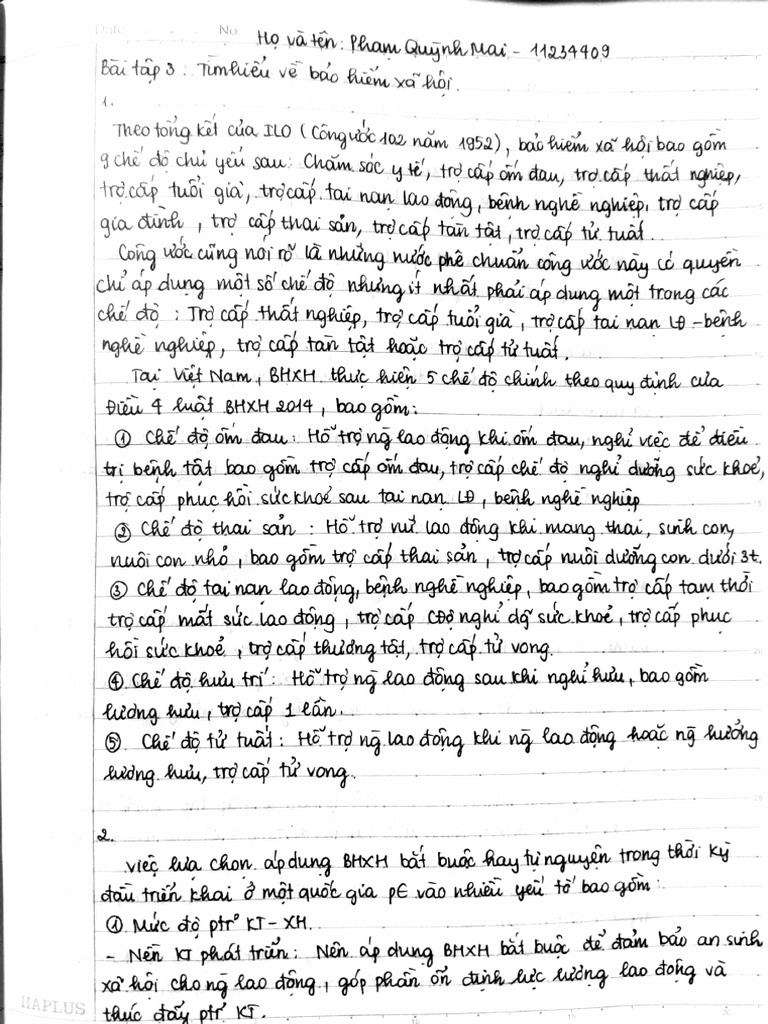 Date No.
Họ và tên: Phạm Quỳnh Mai - 11234409
Bài tập 3: Tìm hiểu về bảo hiểm xã hội.
1.
Theo tổng kết của ILO (Công ước 102 năm 1952), bảo hiểm xã hội bao gồm
9 chế độ chủ yếu sau: Chăm sóc y tế, trợ cấp ốm đau, trợ cấp thất nghiệp,
trợ cấp tuổi già, trợ cấp tai nạn lao động, bệnh nghề nghiệp, trợ cấp
gia đình, trợ cấp thai sản, trợ cấp tàn tật, trợ cấp tử tuất.
Công ước cũng nói rõ là những nước phê chuẩn công ước này có quyền
chỉ áp dụng một số chế độ nhưng ít nhất phải áp dụng một trong các
chế độ: Trợ cấp thất nghiệp, trợ cấp tuổi già, trợ cấp tai nạn LĐ - bệnh
nghề nghiệp, trợ cấp tàn tật hoặc trợ cấp tử tuất.
Tại Việt Nam, BHXH thực hiện 5 chế độ chính theo quy định của
Điều 4 luật BHXH 2014, bao gồm:
① Chế độ ốm đau: Hỗ trợ ng lao động khi ốm đau, nghỉ việc để điều
trị bệnh tật bao gồm trợ cấp ốm đau, trợ cấp chế độ nghỉ dưỡng sức khoẻ,
trợ cấp phục hồi sức khoẻ sau tai nạn LĐ, bệnh nghề nghiệp
② Chế độ thai sản: Hỗ trợ nữ lao động khi mang thai, sinh con,
nuôi con nhỏ, bao gồm trợ cấp thai sản, trợ cấp nuôi dưỡng con dưới 3t.
③ Chế độ tai nạn lao động, bệnh nghề nghiệp, bao gồm trợ cấp tạm thời
trợ cấp mất sức lao động, trợ cấp CĐộ nghỉ dg̃ sức khoẻ, trợ cấp phục
hồi sức khoẻ, trợ cấp thương tật, trợ cấp tử vong.
④ Chế độ hưu trí: Hỗ trợ ng lao động sau khi nghỉ hưu, bao gồm
lương hưu, trợ cấp 1 lần.
⑤ Chế độ tử tuất: Hỗ trợ ng lao động khi ng lao động hoặc ng hưởng
lương hưu, trợ cấp tử vong.
2.
Việc lựa chọn áp dụng BHXH bắt buộc hay tự nguyện trong thời kỳ
đầu triển khai ở một quốc gia p∈ vào nhiều yếu tố bao gồm:
① Mức độ ptr° KT-XH.
- Nền KT phát triển: Nên áp dụng BHXH bắt buộc để đảm bảo an sinh
xã hội cho ng lao động, góp phần ổn định lực lượng lao động và
thúc đẩy ptr° KT.
HAPLUS